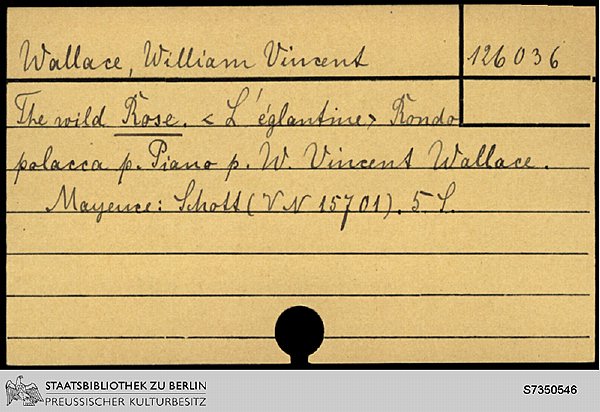 Wallace, William Vincent 126036
The wild Rose. < L'églantine > Rondo
polacca p. Piano p. W. Vincent Wallace.
Mayence: Schott (VN 15701). 5 S.
STAATSBIBLIOTHEK ZU BERLIN
PREUSSISCHER KULTURBESITZ
S7350546